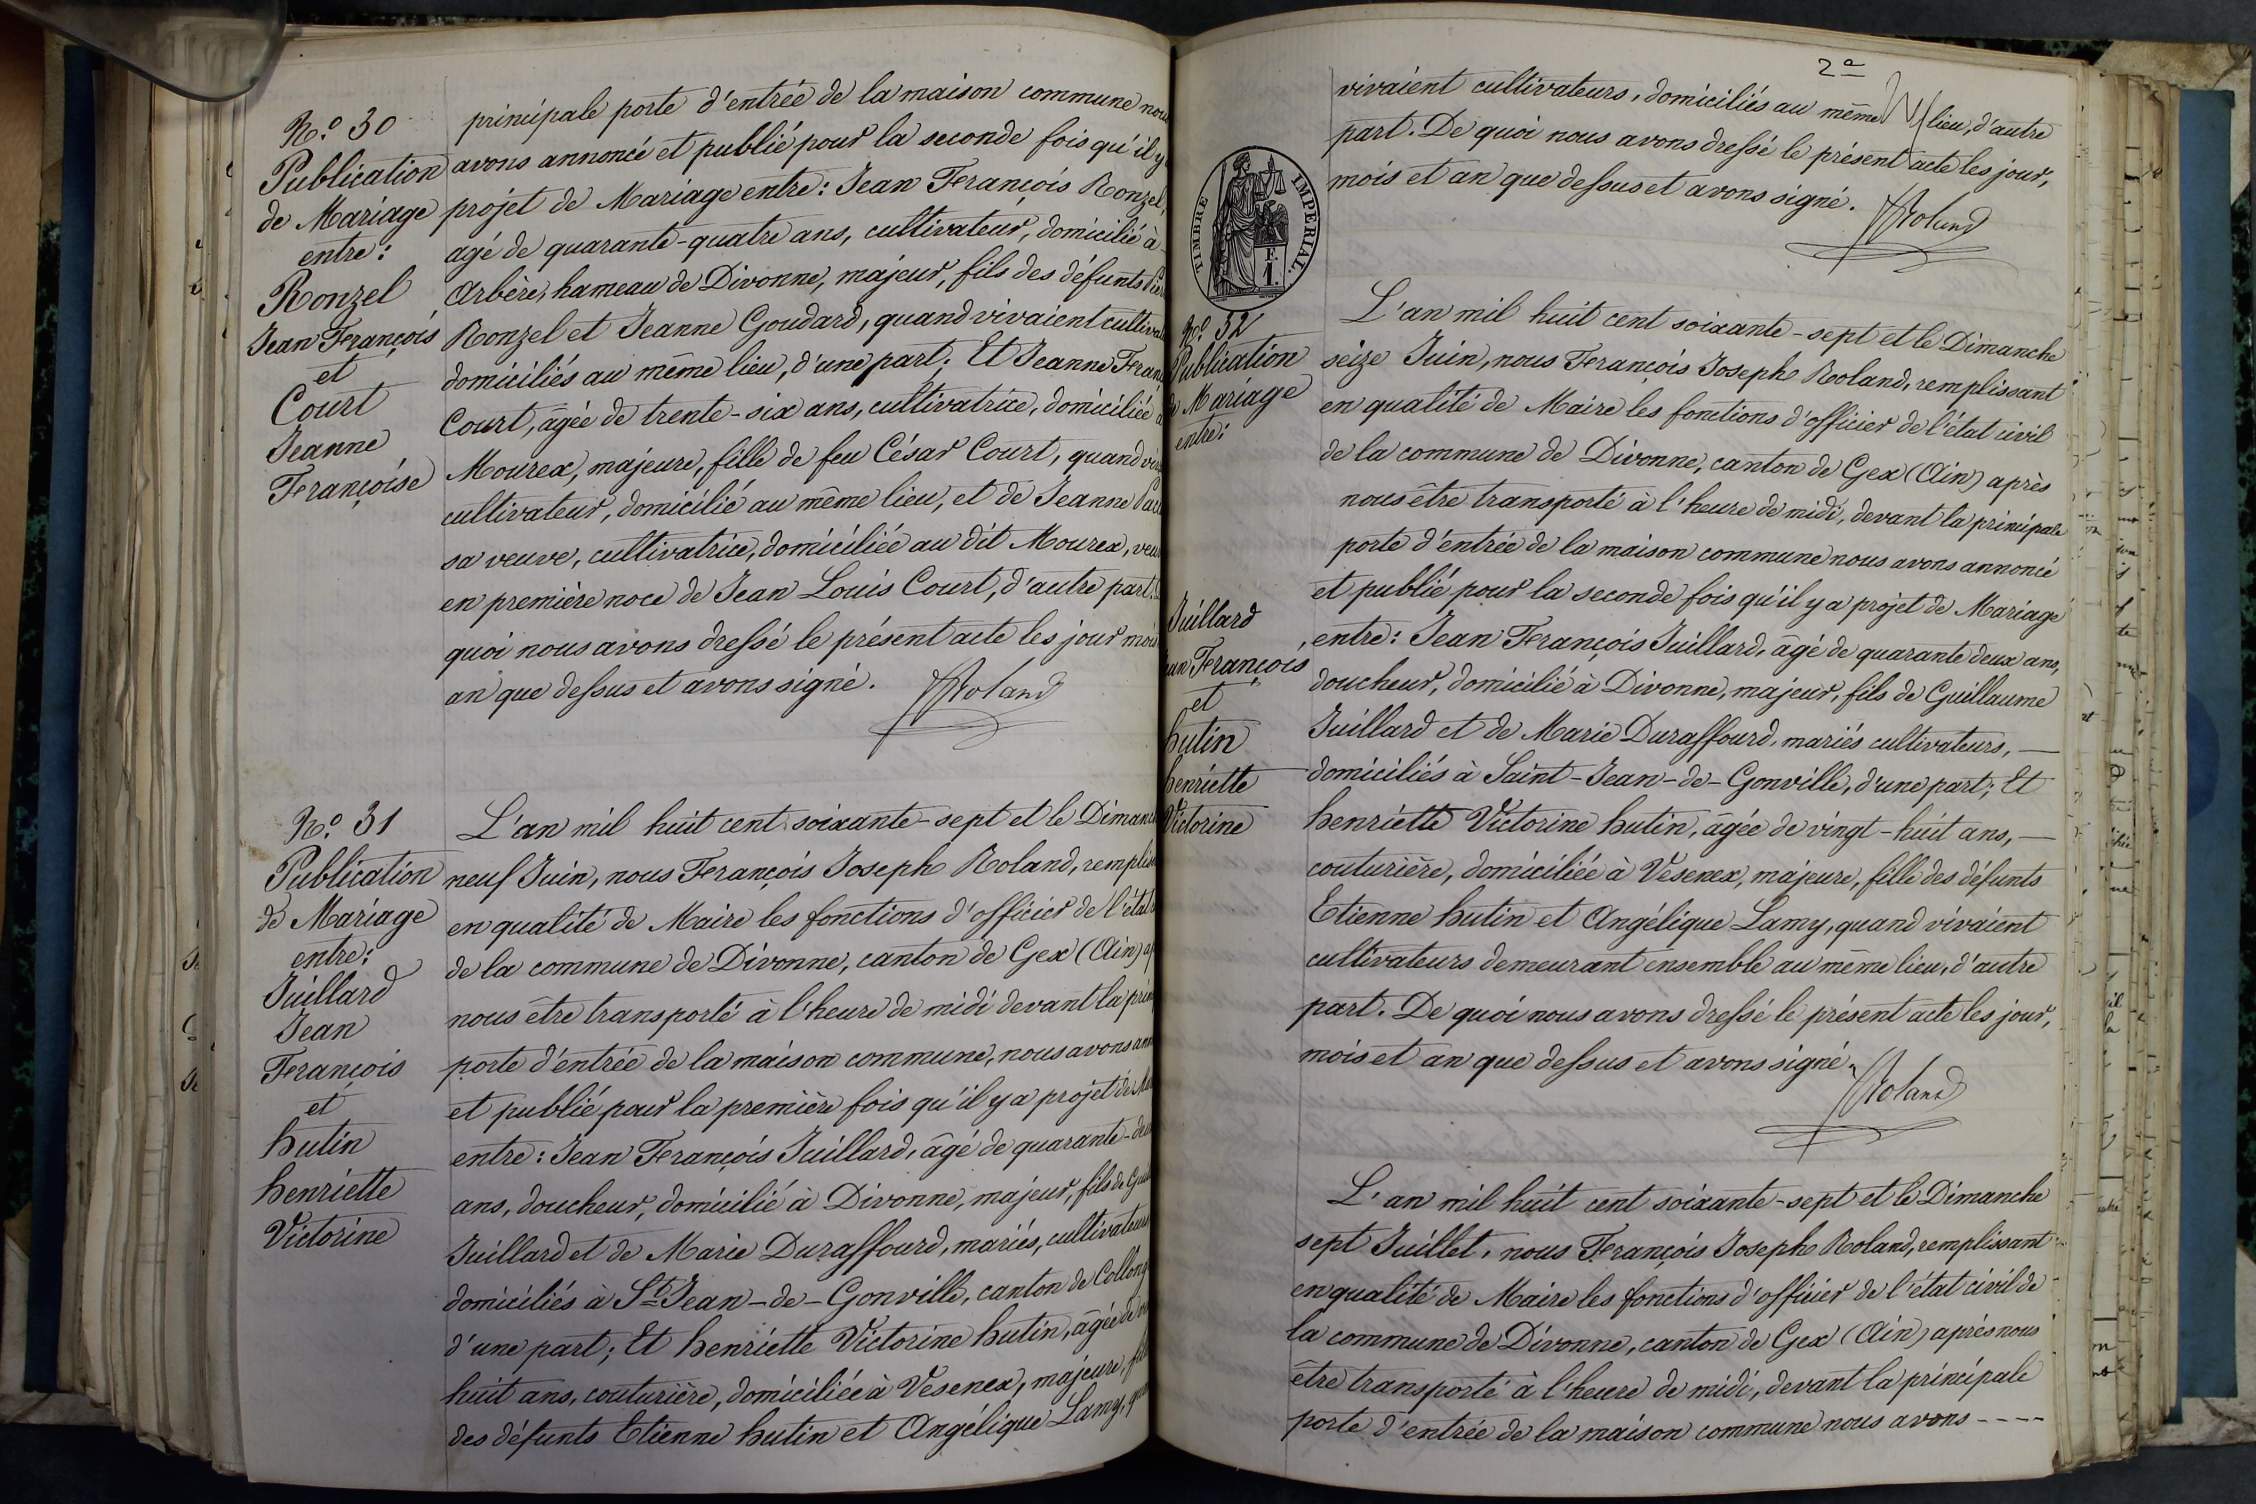 N.o 30
Publication
de Mariage
entre:
Ronzel
Jean François
et
Court
Jeanne
Françoise
principale porte d'entrée de la maison commune nous
avons annoncé et publié pour la seconde fois qu'il y
projet de Mariage entre: Jean François Ronzel,
agé de quarante-quatre ans, cultivateur, domicilié à
Arbère, hameau de Divonne, majeur, fils des défunts
Ronzel et Jeanne Goudard, quand vivaient
domiciliés au même lieu, d'une part; Et Jeanne
Court, âgée de trente-six ans, cultivatrice, domiciliée
Mourex, majeure, fille de feu César Court, quand
cultivateur, domicilié au même lieu, et de Jeanne
sa veuve, cultivatrice, domiciliée au dit Mourex,
en première noce de Jean Louis Court, d'autre part.
quoi nous avons dressé le présent acte les jour mois
an que dessus et avons signé.
Roland
N.o 31
Publication
de Mariage
entre:
Juillard
Jean
François
et
hutin
henriette
Victorine
L'an mil huit cent soixante-sept et le
neuf Juin, nous François Joseph Roland,
en qualité de Maire les fonctions d'officier de l'état
de la commune de Divonne, canton de Gex (Ain)
nous être transporté à l'heure de midi devant la
porte d'entrée de la maison commune, nous avons
et publié pour la première fois qu'il y a projet de
entre: Jean François Juillard, âgé de quarante-
ans, doucheur, domicilié à Divonne, majeur, fils de
Juillard et de Marie Duraffourd, mariés, cultivateurs
domiciliés à St Jean-de-Gonville, canton de
d'une part; Et henriette Victorine hutin, âgée de
huit ans, couturière, domiciliée à Vesenex, majeure,
des défunts Etienne hutin et Angélique Lamy,
2a
vivaient cultivateurs, domiciliés au même lieu, d'autre
part. De quoi nous avons dressé le présent acte les jour,
mois et an que dessus et avons signé.
Roland
TIMBRE IMPÉRIAL.
F.
1.
N.o 32
Publication
de Mariage
entre:
Juillard
François
et
hutin
henriette
Victorine
L'an mil huit cent soixante-sept et le Dimanche
seize Juin, nous François Joseph Roland, remplissant
en qualité de Maire les fonctions d'officier de l'état civil
de la commune de Divonne, canton de Gex (Ain) après
nous être transporté à l'heure de midi, devant la principale
porte d'entrée de la maison commune nous avons annoncé
et publié pour la seconde fois qu'il y a projet de Mariage
entre: Jean François Juillard, âgé de quarante deux ans,
doucheur, domicilié à Divonne, majeur, fils de Guillaume
Juillard et de Marie Duraffourd, mariés cultivateurs, —
domiciliés à Saint-Jean-de-Gonville, d'une part; Et
henriette Victorine hutin, âgée de vingt-huit ans, —
couturière, domiciliée à Vesenex, majeure, fille des défunts
Etienne hutin et Angélique Lamy, quand vivaient
cultivateurs demeurant ensemble au même lieu, d'autre
part. De quoi nous avons dressé le présent acte les jour,
mois et an que dessus et avons signé.
Roland
L'an mil huit cent soixante-sept et le Dimanche
sept Juillet, nous François Joseph Roland, remplissant
en qualité de Maire les fonctions d'officier de l'état civil de
la commune de Divonne, canton de Gex (Ain) après nous
être transporté à l'heure de midi, devant la principale
porte d'entrée de la maison commune nous avons ----